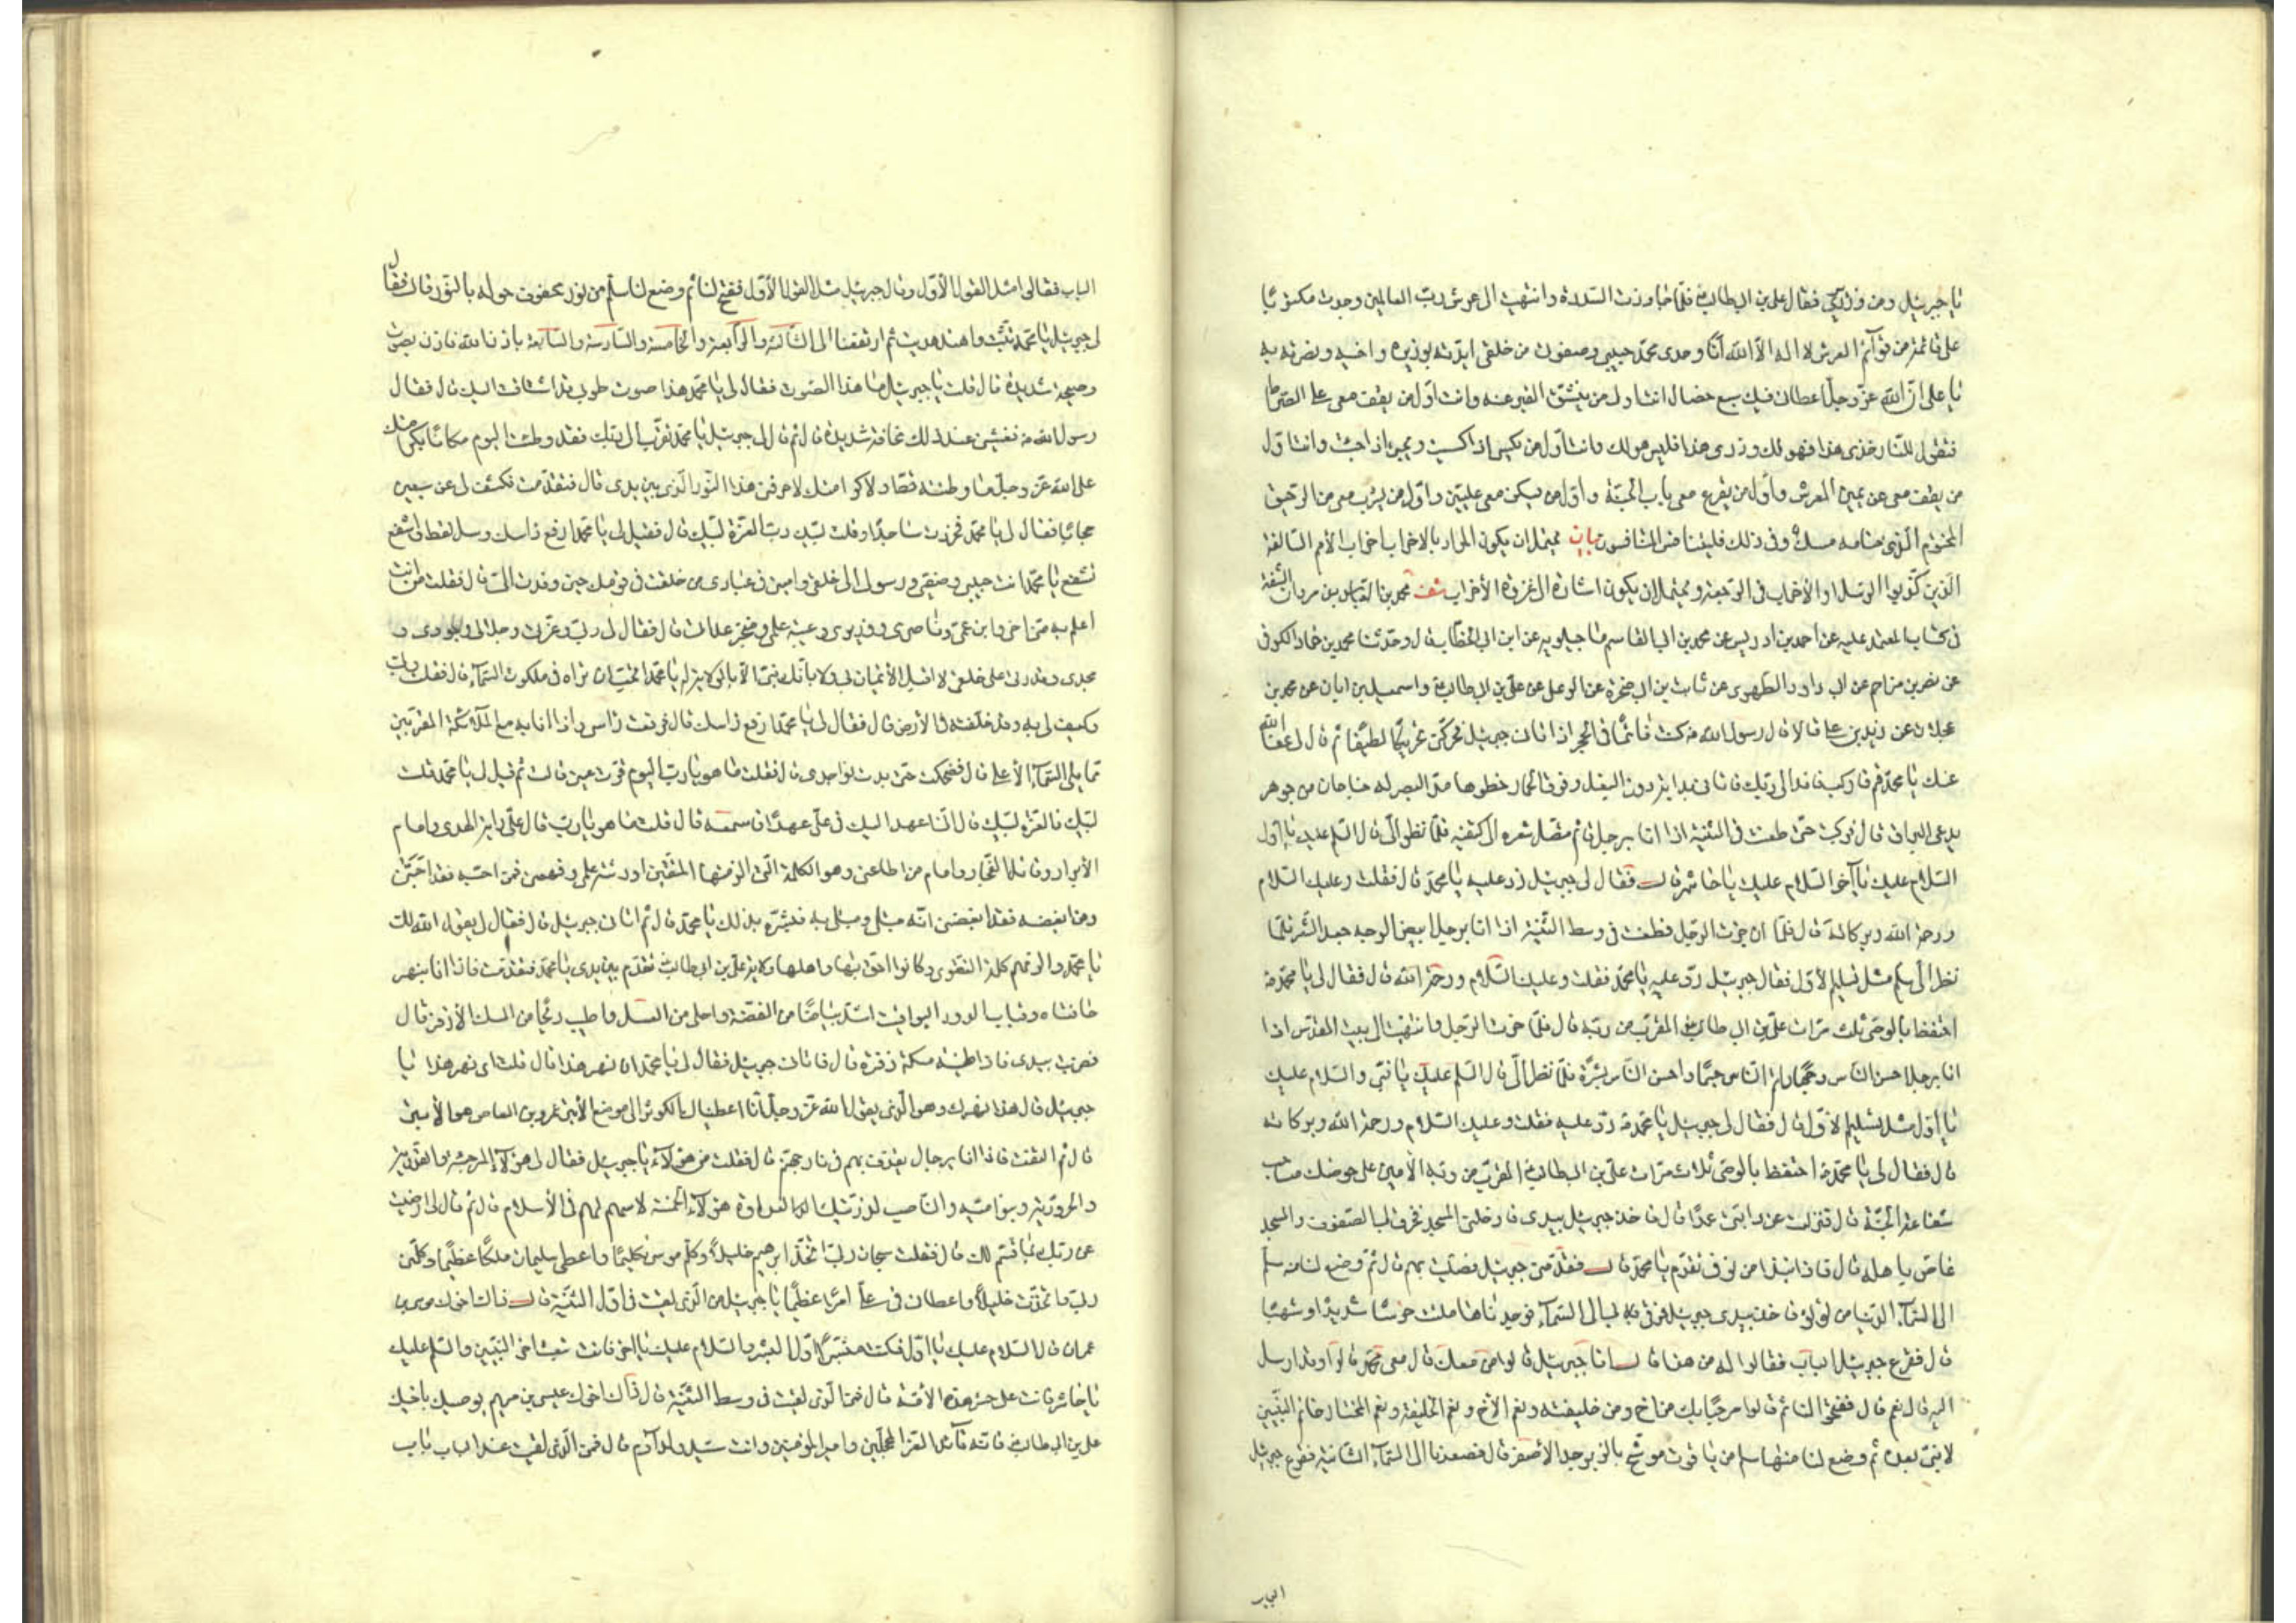 يا جبرئيل ومن وزيري فقال علي بن ابي طالب ع فلما جاوزت السدرة وانتهيت الى عرش رب العالمين وجدت مكتوبا
على قائمة من قوائم العرش لا اله الا الله انا وحدي محمد حبيبي وصفوتي من خلقي ايدته بوزيره واخيه ونصرته به
يا علي ان الله عز وجل اعطاني فيك سبع خصال انت اول من ينشق القبر عنه وانت اول من يقف معي على الصراط
فتقول للنار خذي هذا فهو لك وذري هذا فليس هو لك وانت اول من يكسى اذا كسيت ويحيى اذا حييت وانت اول
من يقف معي عن يمين العرش واول من يقرع معي باب الجنة واول من يسكن معي عليين واول من يشرب معي من الرحيق
المختوم الذي ختامه مسك وفي ذلك فليتنافس المتنافسون بيان يحتمل ان يكون المراد بالاحزاب احزاب الأمم السالفة
الذين كذبوا الرسل او الأحزاب في الرجعة ويحتمل ان يكون اشارة الى غزوة الأحزاب شف محمد بن العباس بن مروان الثقة
في كتاب المعتمد عليه عن احمد بن ادريس عن محمد بن ابي القاسم ماجيلويه عن ابن ابي الخطاب قال وحدثنا محمد بن حماد الكوفي
عن نصر بن مزاحم عن ابي داود الطهوي عن ثابت بن ابي صخرة عن الرعلي عن علي بن ابي طالب ع واسمعيل بن ابان عن محمد بن
عجلان عن زيد بن علي قالا قال رسول الله ص كنت نائما في الحجر اذ اتاني جبرئيل فحركني تحريكا لطيفا ثم قال لي عفا الله
عنك يا محمد قم واركب فافد الى ربك فاتاني بدابة دون البغل وفوق الحمار خطوها مد البصر له جناحان من جوهر
يدعى البراق قال فركبت حتى طعنت في الثنية اذا انا برجل قائم متصل شعره الى كتفيه فلما نظر الي قال السلم عليك يا اول
السلام عليك يا آخر السلام عليك يا حاشر قال فقال لي جبرئيل رد عليه يا محمد قال فقلت وعليك السلام
ورحمة الله وبركاته قال فلما ان جزت الرجل فطعنت في وسط الثنية اذا انا برجل ابيض الوجه جعد الشعر فلما
نظر الي سلم مثل تسليم الأول فقال جبرئيل رد عليه يا محمد فقلت وعليك السلام ورحمة الله قال فقال لي يا محمد ص
احتفظ بالوصي ثلث مرات علي بن ابي طالب ع المقرب من ربه قال فلما جزت الرجل وانتهيت الى بيت المقدس اذا
انا برجل احسن الناس وجها واتم الناس جسما واحسن الناس بشرة فلما نظر الي قال السلم عليك يا نبي والسلام عليك
يا اول مثل تسليم الأول قال فقال لي جبرئيل يا محمد ص رد عليه فقلت وعليك السلام ورحمة الله وبركاته
قال فقال لي يا محمد ص احتفظ بالوصي ثلاث مرات علي بن ابي طالب ع المقرب من ربه الأمين على حوضك صاحب
شفاعة الجنة قال فنزلت عن دابتي عمدا قال فاخذ جبرئيل بيدي فادخلني المسجد فخرق بي الصفوف والمسجد
غاص باهله قال فاذا بنداء من فوقي تقدم يا محمد قال فقدمني جبرئيل فصليت بهم قال ثم وضع لنا منه سلم
الى السماء الدنيا من لؤلؤ فاخذ بيدي جبرئيل فرقى بي الى السماء فوجدناها ملئت حرسا شديدا وشهبا
قال فقرع جبرئيل الباب فقالوا له من هذا قال انا جبرئيل قالوا من معك قال معي محمد قالوا وقد ارسل
اليه قال نعم قال ففتحوا لنا ثم قالوا مرحبا بك من اخ ومن خليفة ونعم الأخ ونعم الخليفة ونعم المختار خاتم النبيين
لا نبي بعده ثم وضع لنا منها سلم من ياقوت موشح بالزبرجد الأخضر قال فصعدنا الى السماء الثانية فقرع جبرئيل
الباب
الباب فقالوا مثل القول الأول وقال جبرئيل مثل القول الأول ففتح لنا ثم وضع لنا سلم من نور محفوف حوله بالنور قال فقال
لي جبرئيل يا محمد تثبت واهتد هديت ثم ارتفعنا الى الثالثة والرابعة والخامسة والسادسة والسابعة باذن الله فاذن بصوت
وصيحة شديدة قال قلت يا جبرئيل ما هذا الصوت فقال لي يا محمد هذا صوت طوبى قد اشتاقت اليك قال فقال
رسول الله ص فغشيني عند ذلك مخافة شديدة قال ثم قال لي جبرئيل يا محمد تقرب الى ربك فقد وطئت اليوم مكانا بكرامتك
على الله عز وجل ما وطئته قط ولولا كرامتك لاحرقني هذا النور الذي بين يدي قال فتقدمت فكشف لي عن سبعين
حجابا فقال لي يا محمد فخررت ساجدا وقلت لبيك رب العزة لبيك قال فقيل لي يا محمد ارفع راسك وسل تعط واشفع
تشفع يا محمد انت حبيبي وصفيي ورسولي الى خلقي واميني في عبادي من خلفت في قومك حين وفدت الي قال فقلت من انت
اعلم به مني اخي وابن عمي وناصري ووزيري وعيبة علمي ومنجز عداتي قال فقال لي ربي وعزتي وجلالي وجودي و
مجدي وقدرتي على خلقي لا اقبل الأيمان بي ولا بانك نبي الا بالولاية له يا محمد اتحب ان تراه في ملكوت السماء قال فقلت ربي
وكيف لي به وقد خلفته في الأرض قال فقال لي يا محمد ارفع راسك قال فرفعت راسي واذا انا به مع الملائكة المقربين
مما يلي السماء الأعلى قال فضحكت حتى بدت نواجدي قال فقلت ما هو يا رب اليوم قرت عيني قال ثم قيل لي يا محمد قلت
لبيك ذا العزة لبيك قال انا عهد اليك في علي عهدا فاسمعه قال قلت ما هو يا رب قال علي راية الهدى وامام
الأبرار وقاتل الفجار وامام من اطاعني وهو الكلمة التي الزمتها المتقين اورثته علمي وفهمي فمن احبه فقد احبني
ومن ابغضه فقد ابغضني انه مبتلى ومبتلى به فبشره بذلك يا محمد قال ثم اتاني جبرئيل قال فقال لي يقول الله لك
يا محمد والزمهم كلمة التقوى وكانوا احق بها واهلها ولاية علي بن ابي طالب ع تقدم بين يدي يا محمد فتقدمت فاذا انا بنهر
حافتاه قباب الدر واليواقيت اشد بياضا من الفضة واحلى من العسل واطيب ريحا من المسك الأذفر قال
فضربت بيدي فاذا طينه مسكة ذفرة قال فاتاني جبرئيل فقال لي يا محمد اي نهر هذا قال قلت اي نهر هذا يا
جبرئيل قال هذا نهرك وهو الذي يقول الله عز وجل انا اعطيناك الكوثر الى موضع الأبتر عمرو بن العاص هو الأبتر
قال ثم التفت فاذا انا برجال يقذف بهم في نار جهنم قال فقلت من هؤلاء يا جبرئيل فقال لي هؤلاء المرجئة والقدرية
والحرورية وبنو امية والناصب لذريتك العداوة هؤلاء الخمسة لا سهم لهم في الأسلام قال ثم قال لي ارضيت
عن ربك بما قسم لك قال فقلت سبحان ربي اتخذ ابرهيم خليلا وكلم موسى تكليما واعطى سليمان ملكا عظيما وكلمني
ربي واتخذني خليلا واعطاني في علي امرا عظيما يا جبرئيل من الذي لقيت في اول الثنية قال ذاك اخوك موسى بن
عمران قال السلام عليك يا اول فكنت مبشرا اول البشر والسلام عليك يا آخر فانت تبعث آخر النبيين والسلم عليك
يا حاشر فانت على حشر هذه الأمة قال فمن الذي لقيت في وسط الثنية قال ذاك اخوك عيسى بن مريم يوصيك باخيك
علي بن ابي طالب ع فانه قائد الغر المحجلين وامير المؤمنين وانت سيد ولد آدم قال فمن الذي لقيت عند الباب باب